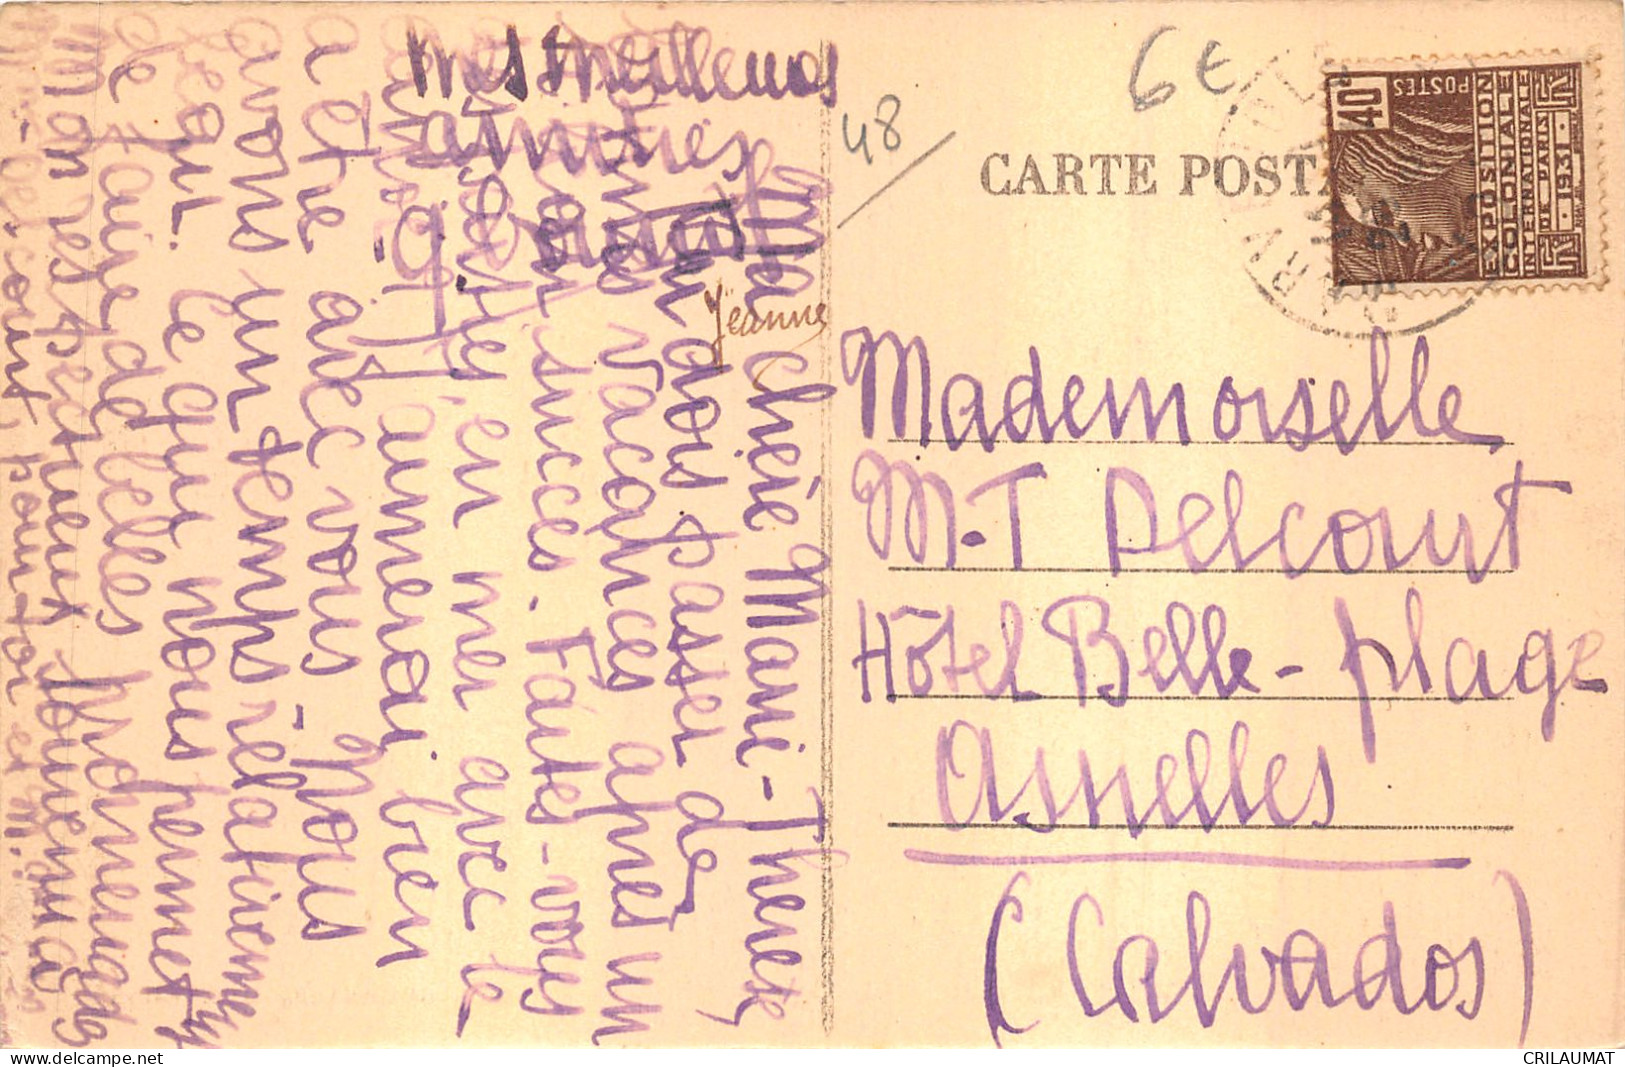 Ma chère Marie-Thérèse,
Tu dois passer de
bonnes vacances après un
bon succès. Faites-vous
des parties en mer avec le
j'aimerai bien
a être avec vous. Nous
avons un temps relativement
beau. Ce qui nous permet
de faire de belles promenades
Mon respectueux souvenir à
pour toi
mes meilleures
amitiés
Jeanne
48
6€
CARTE POSTA
40c
POSTES
EXPOSITION
COLONIALE
INTERNATIONALE
DE PARIS
1931
Mademoiselle
M-T Delcourt
Hôtel Belle-plage
Asnelles
(Calvados)
CRILAUMAT